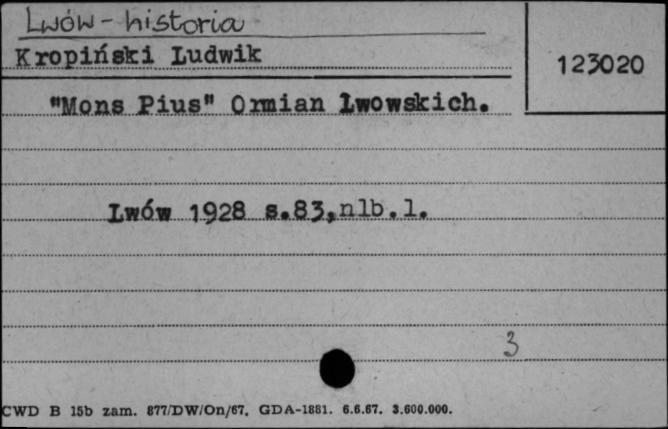 Lwów - historia
Kropiński Ludwik
123020
"Mons Pius" Ormian Lwowskich.
Lwów 1928 s.83,nlb.1.
3
CWD B 15b zam. 877/DW/On/67. GDA-1881. 6.6.67. 3.600.000.